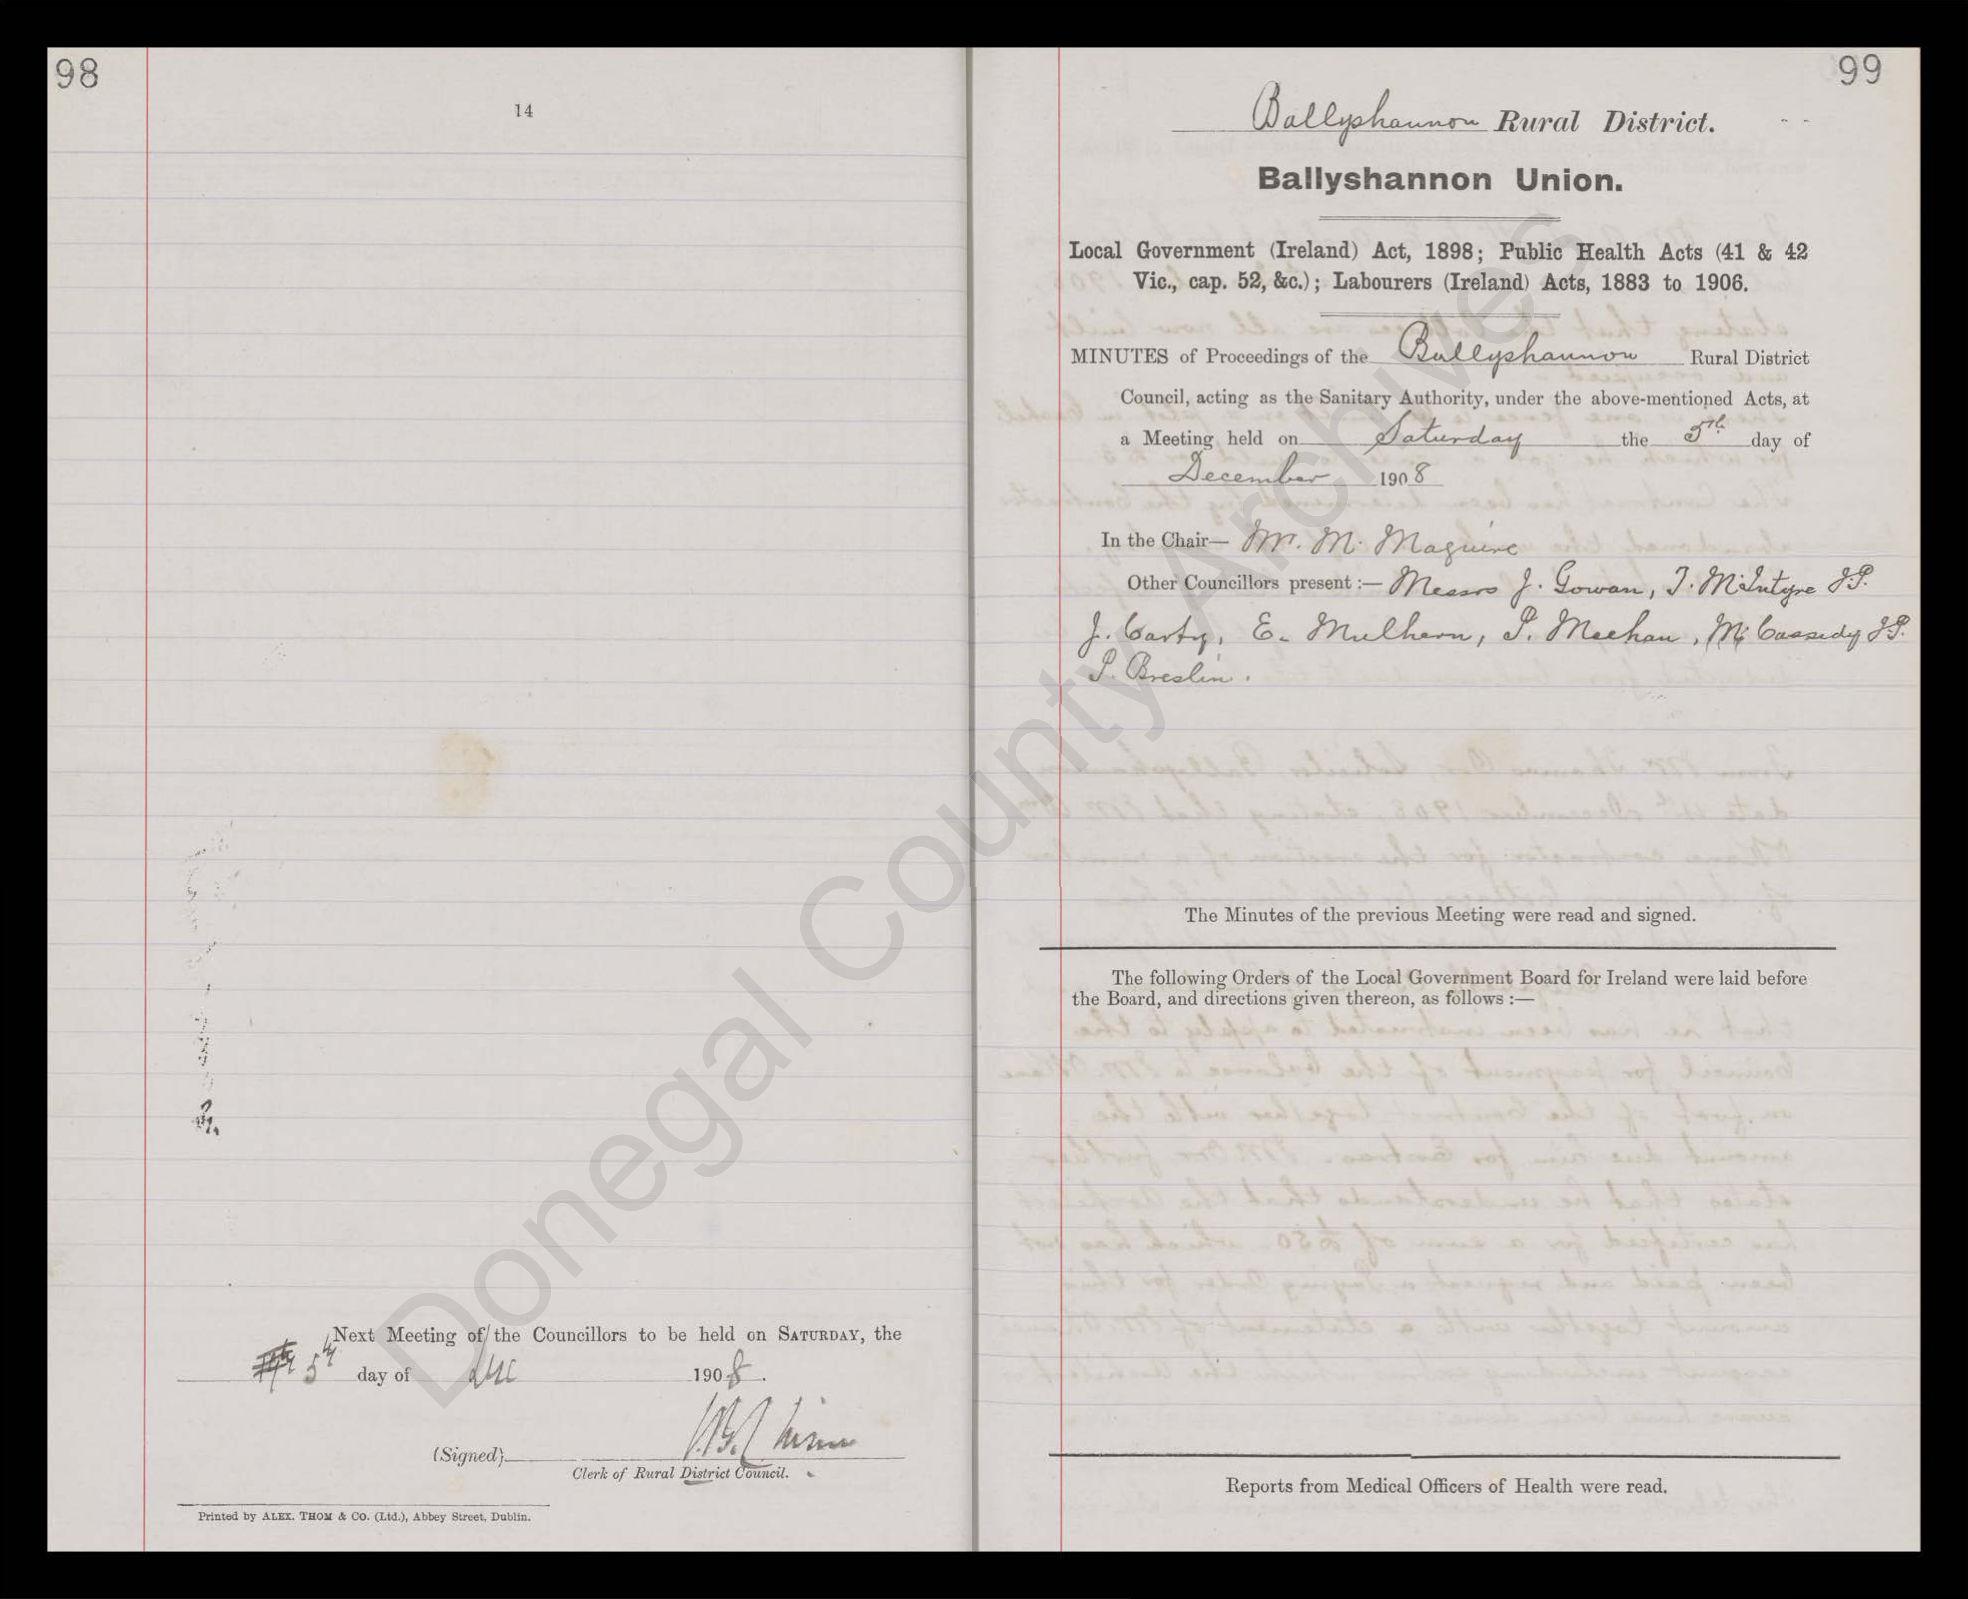 98
14
Next Meeting of the Councillors to be held on SATURDAY, the
5th day of Dec 1908.
(Signed)
Clerk of Rural District Council.
Printed by ALEX. THOM & CO. (Ltd.), Abbey Street, Dublin.
99
Ballyshannon Rural District.
Ballyshannon Union.
Local Government (Ireland) Act, 1898; Public Health Acts (41 & 42
Vic., cap. 52, &c.); Labourers (Ireland) Acts, 1883 to 1906.
MINUTES of Proceedings of the Ballyshannon Rural District
Council, acting as the Sanitary Authority, under the above-mentioned Acts, at
a Meeting held on Saturday the 5th day of
December 1908
In the Chair— Mr. M. Maguire
Other Councillors present :— Messrs J. Gowan, T. McIntyre J.P.
J. Carty, E. Mulhern, P. Meehan, M. Cassidy J.P.
P. Breslin.
The Minutes of the previous Meeting were read and signed.
The following Orders of the Local Government Board for Ireland were laid before
the Board, and directions given thereon, as follows :—
Reports from Medical Officers of Health were read.
Donegal County Archives